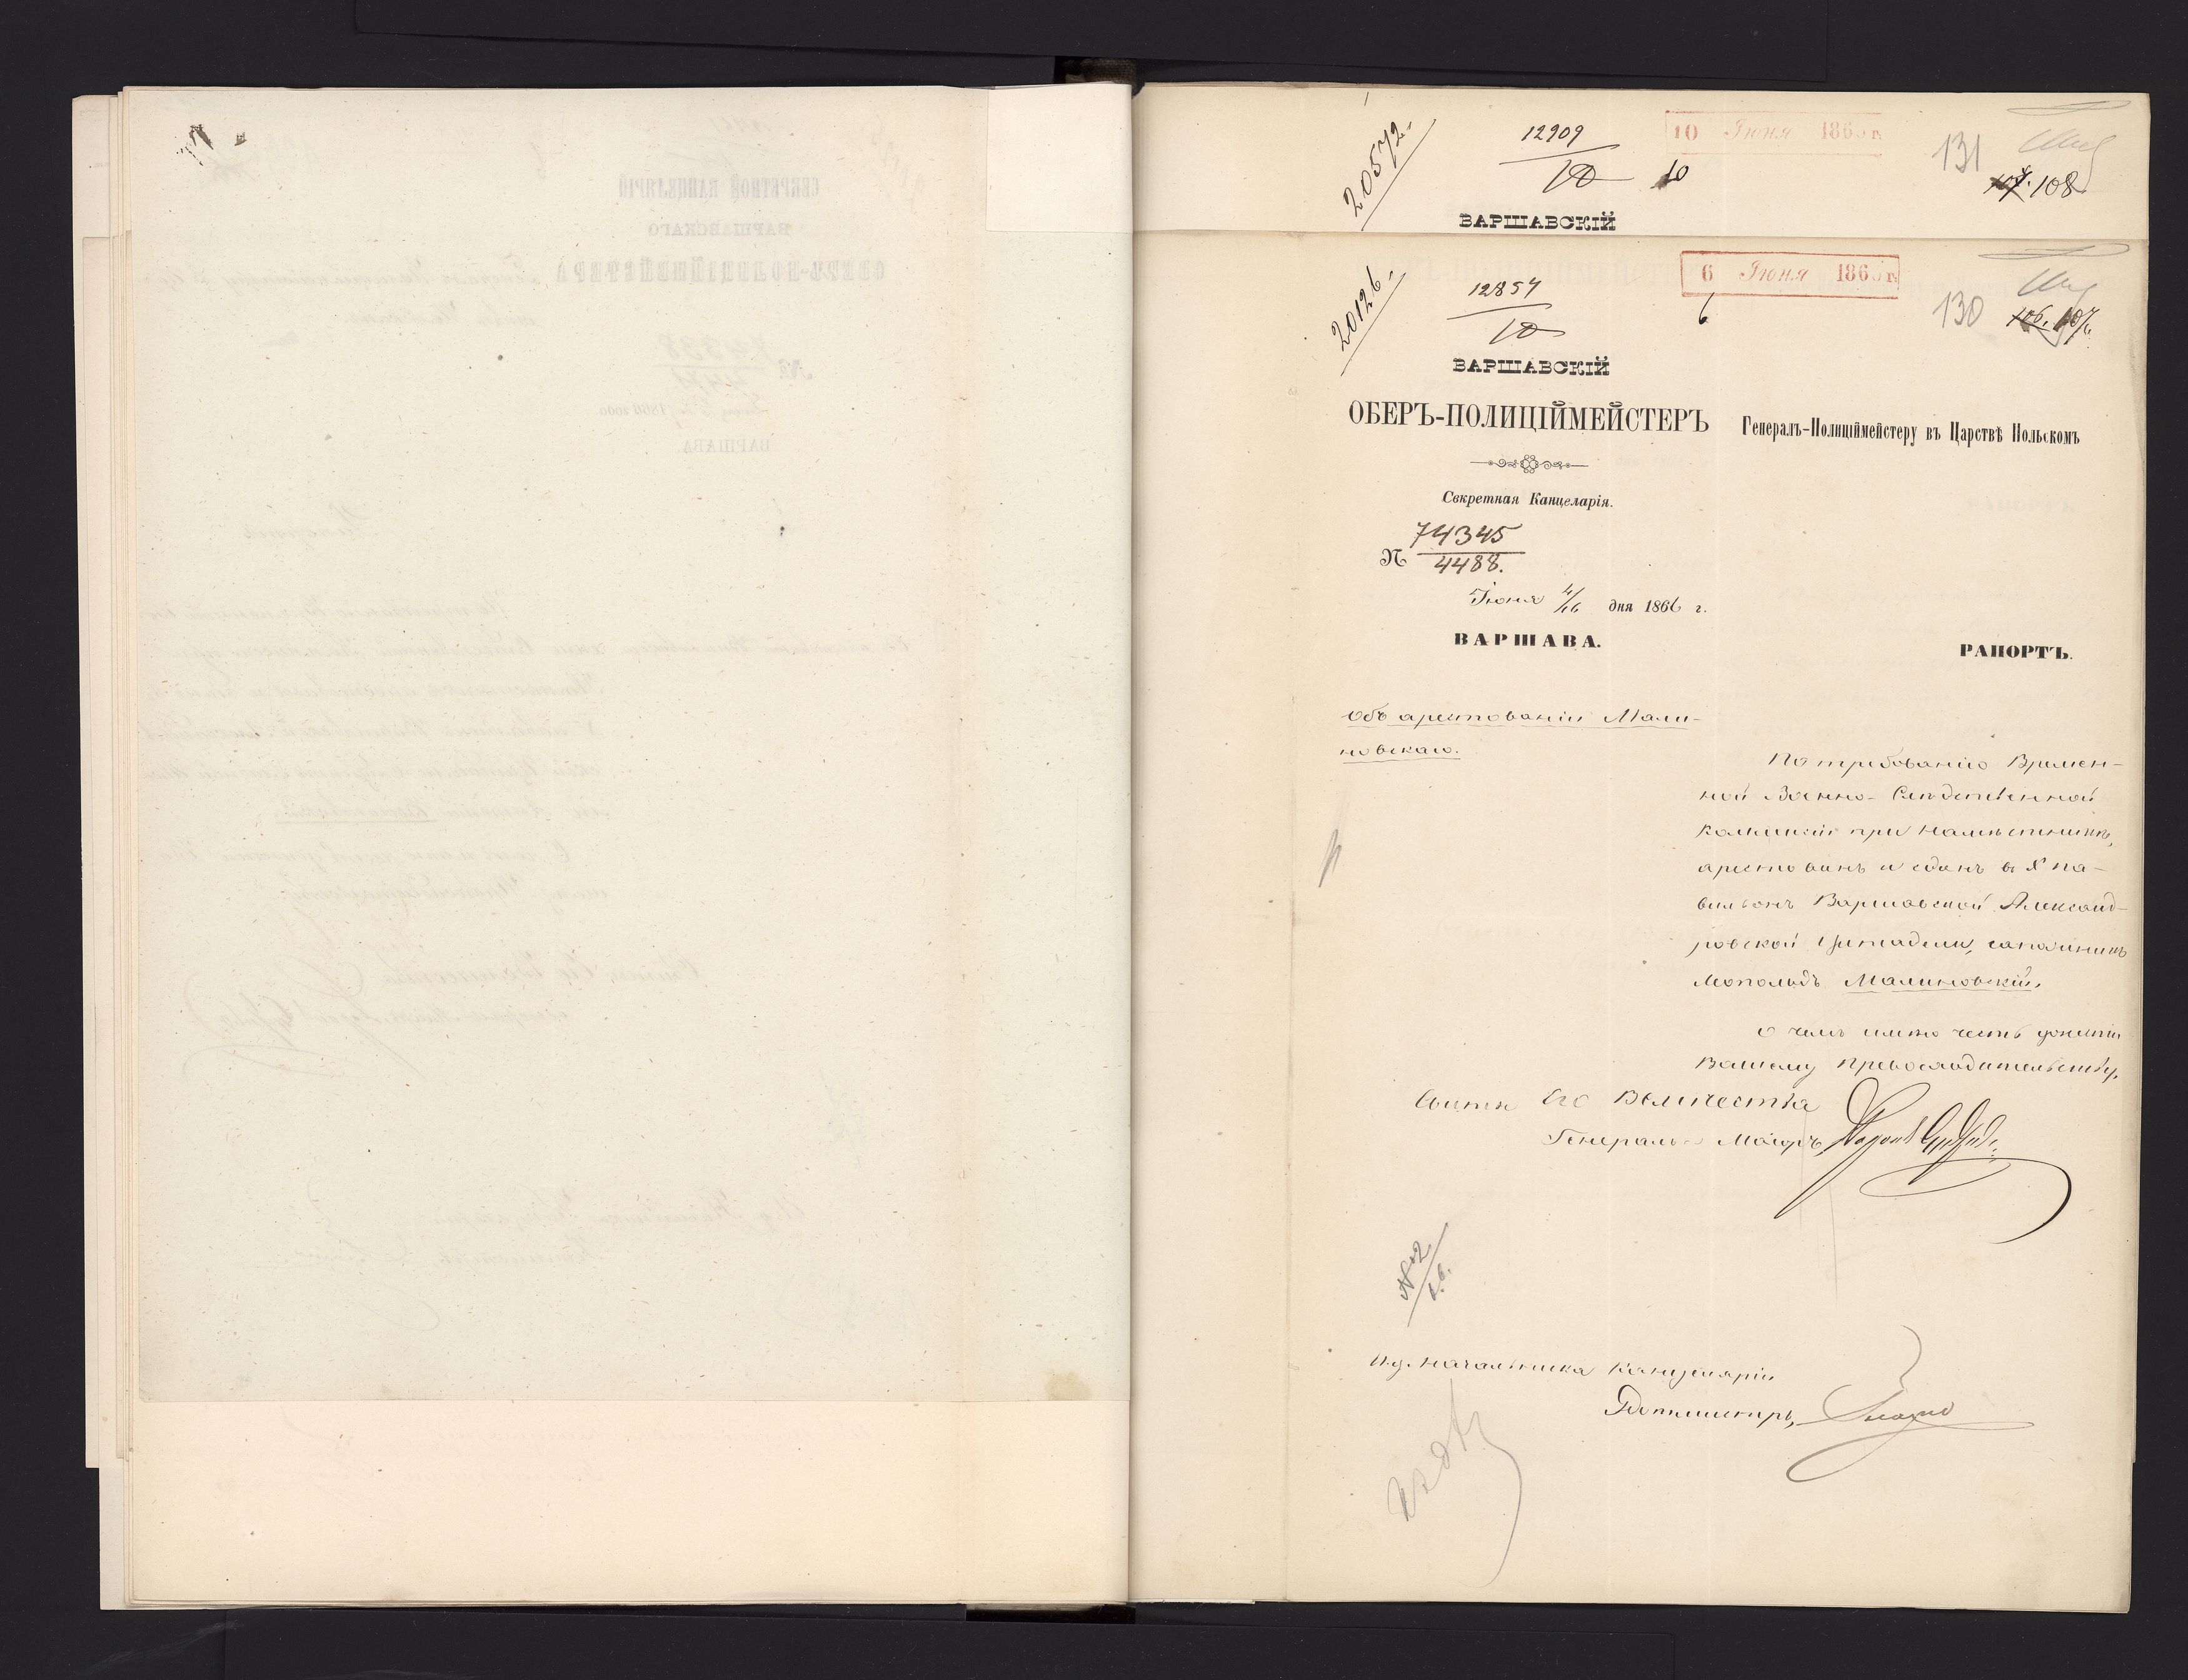 20572.
12909
10
10
10 Іюня 186 г.
131
107. 108
ВАРШАВСКІЙ
20126.
12857
10
6
6 Іюня 186 г.
130
106. 107.
ВАРШАВСКІЙ
ОБЕРЪ-ПОЛИЦІЙМЕЙСТЕРЪ
Секретная Канцеларія.
№ 74345
4488.
Іюня 4/16 дня 1866 г.
ВАРШАВА.
Генералъ-Полиціймейстеру въ Царствѣ Польскомъ
РАПОРТЪ.
Объ арестованіи Мали-
новскаго.
По требованію Времен-
ной Военно-Слѣдственной
Коммисіи при Намѣстникѣ,
арестованъ и сданъ въ X па-
вильонъ Варшавской Александ-
ровской Цитадели, сапожникъ
Леопольдъ Малиновскій,
о чемъ имѣю честь донести
Вашему Превосходительству.
Свиты Его Величества
Генералъ-Маіоръ, Баронъ
И.д. Начальника Канцеляріи